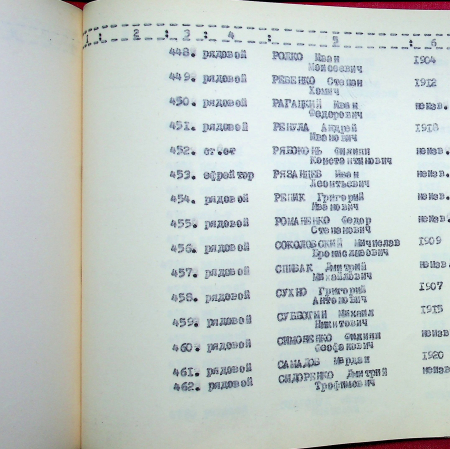 1 : 2 : 3 : 4 : 5 : 6
448. рядовой РОШКО Иван 1904
Моисеевич
449. рядовой РЕБЕНКО Степан 1912
Хомич
450. рядовой РАГАЦКИЙ Иван неизв.
Федорович
451. рядовой РЕПУЛА Андрей 1918
Иванович
452. ст.с-т РЯБОКОНЬ Филипп неизв.
Константинович
453. ефрейтор РЯЗАНЦЕВ Иван неизв.
Леонтьевич
454. рядовой РЕПАК Григорий неизв.
Иванович
455. рядовой РОМАНЕНКО Федор неизв.
Степанович
456. рядовой СОКОЛОВСКИЙ Мичислав 1909
Брониславович
457. рядовой СПИВАК Дмитрий неизв.
Михайлович
458. рядовой СУХНО Григорий 1907
Антонович
459. рядовой СУББОТИН Михаил 1915
Никитович
460. рядовой СИМОНЕНКО Филипп неизв
Феофанович
461. рядовой САМАДОВ Мердан 1920
462. рядовой СИДОРЕНКО Дмитрий неизв.
Трофимович